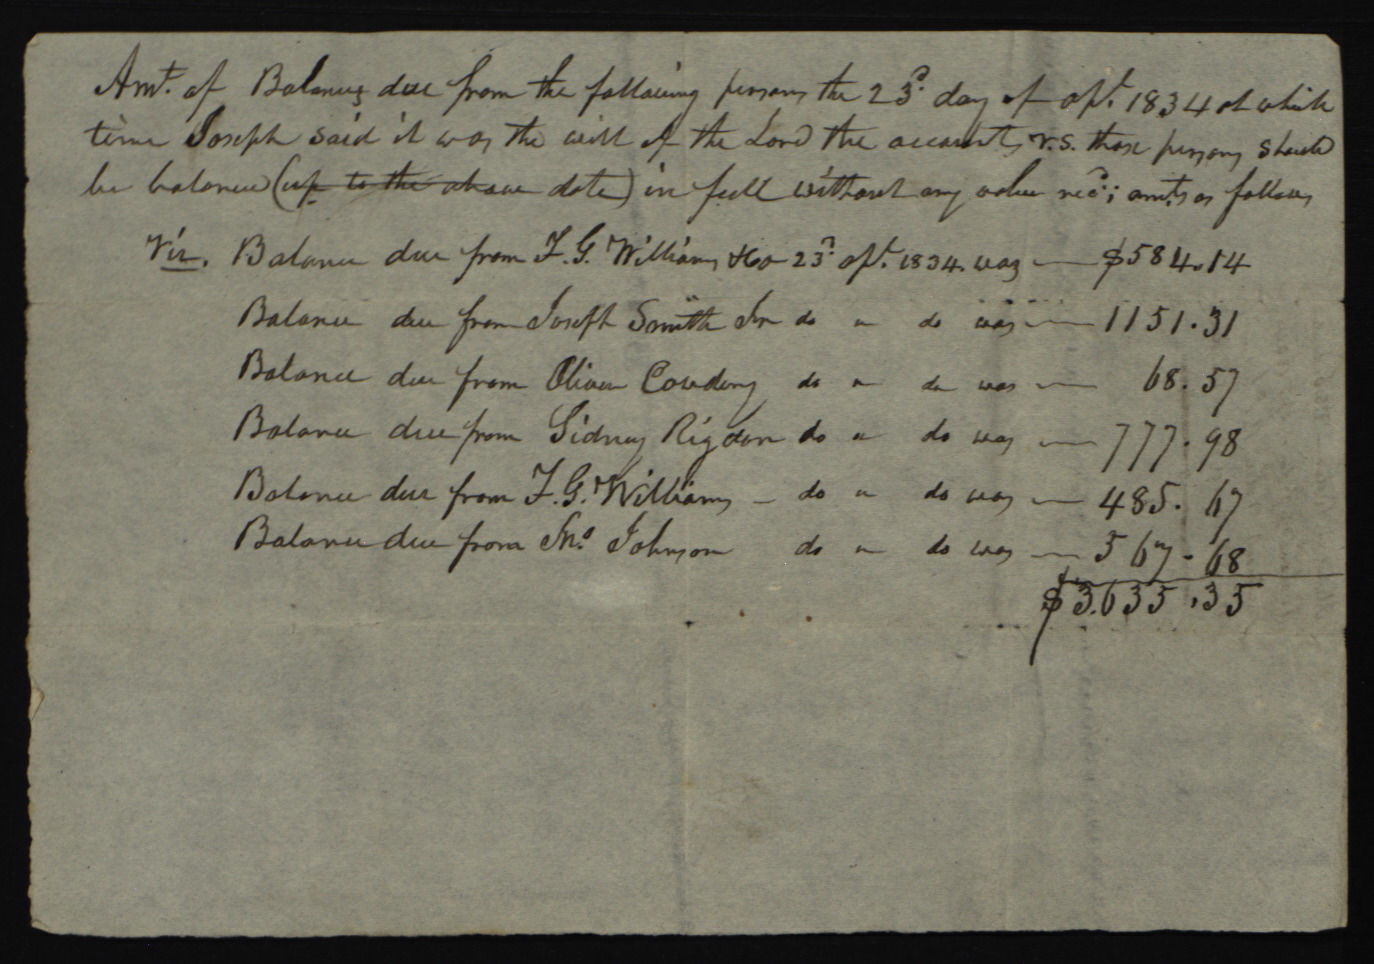 Amt. of Balances due from the following persons the 23d. day of Apl. 1834 at which
time Joseph said it was the will of the Lord the accounts v.s. those persons should
be balanced (up to the above date) in full without any value recd.; amts as follows
Viz. Balance due from F. G. Williams & Co 23d. Apl. 1834. was — $584.14
Balance due from Joseph Smith Jr do " do was — 1151.31
Balance due from Oliver Cowdery do " do was — 68.57
Balance due from Sidney Rigdon do " do was — 777.98
Balance due from F. G. Williams — do " do was — 485.67
Balance due from Jno. Johnson do " do was — 567.68
$3.635.35